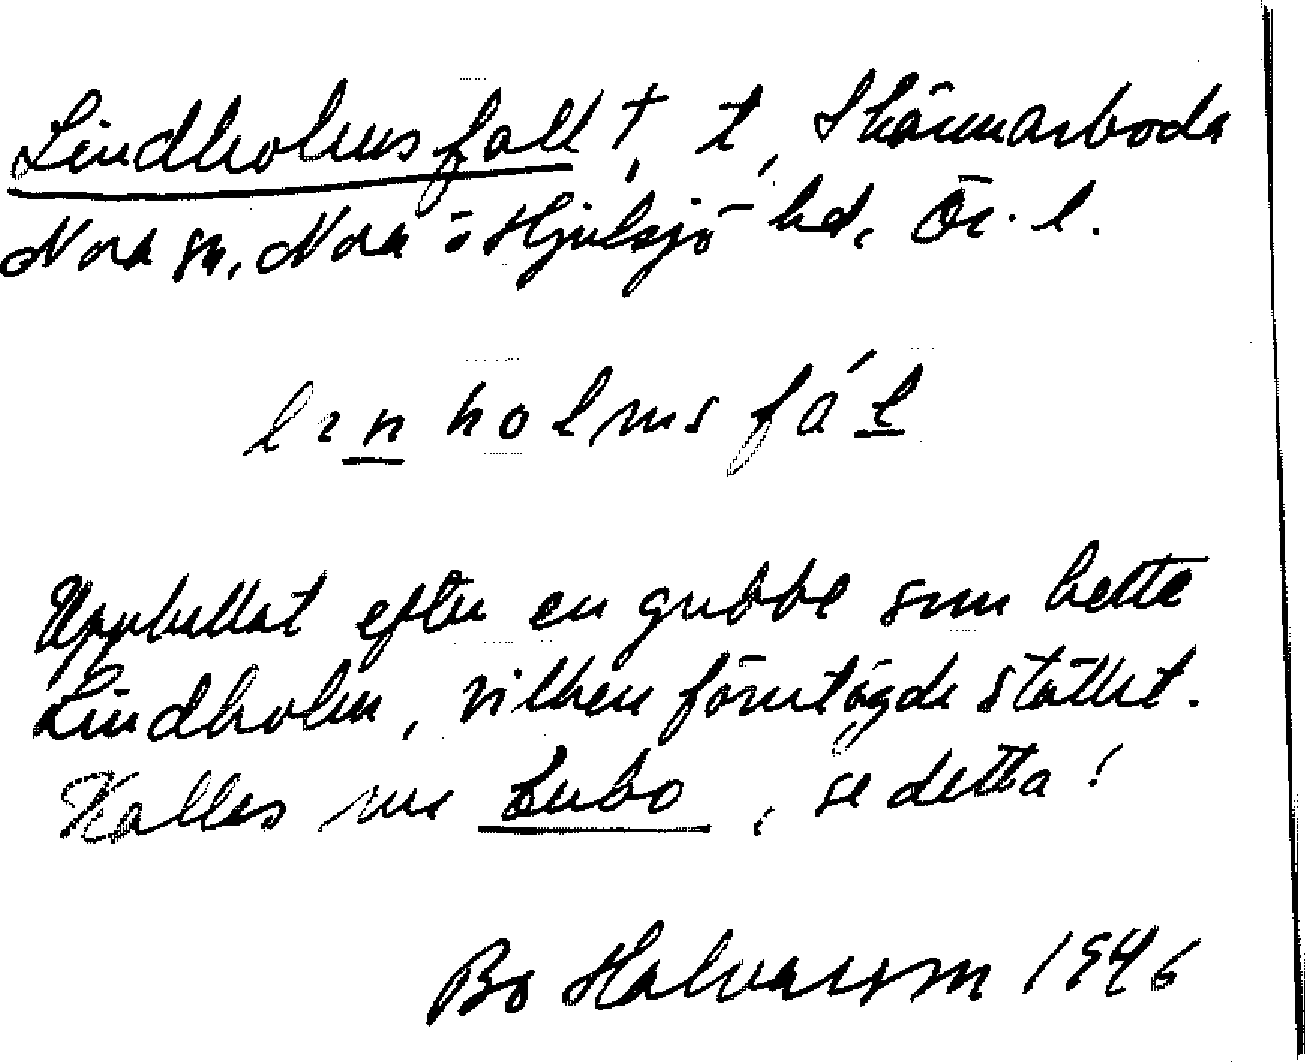 Lindholmsfall †, t, Skärmarboda
Nora sn, Nora ō Hjulsjō hd, Ör. l.
lınholmsfál
Uppkallat efter en gubbe som hette
Lindholm, vilken först ägde stället.
Kallas nu Lubo, se detta!
Bo Halvarsson 1946